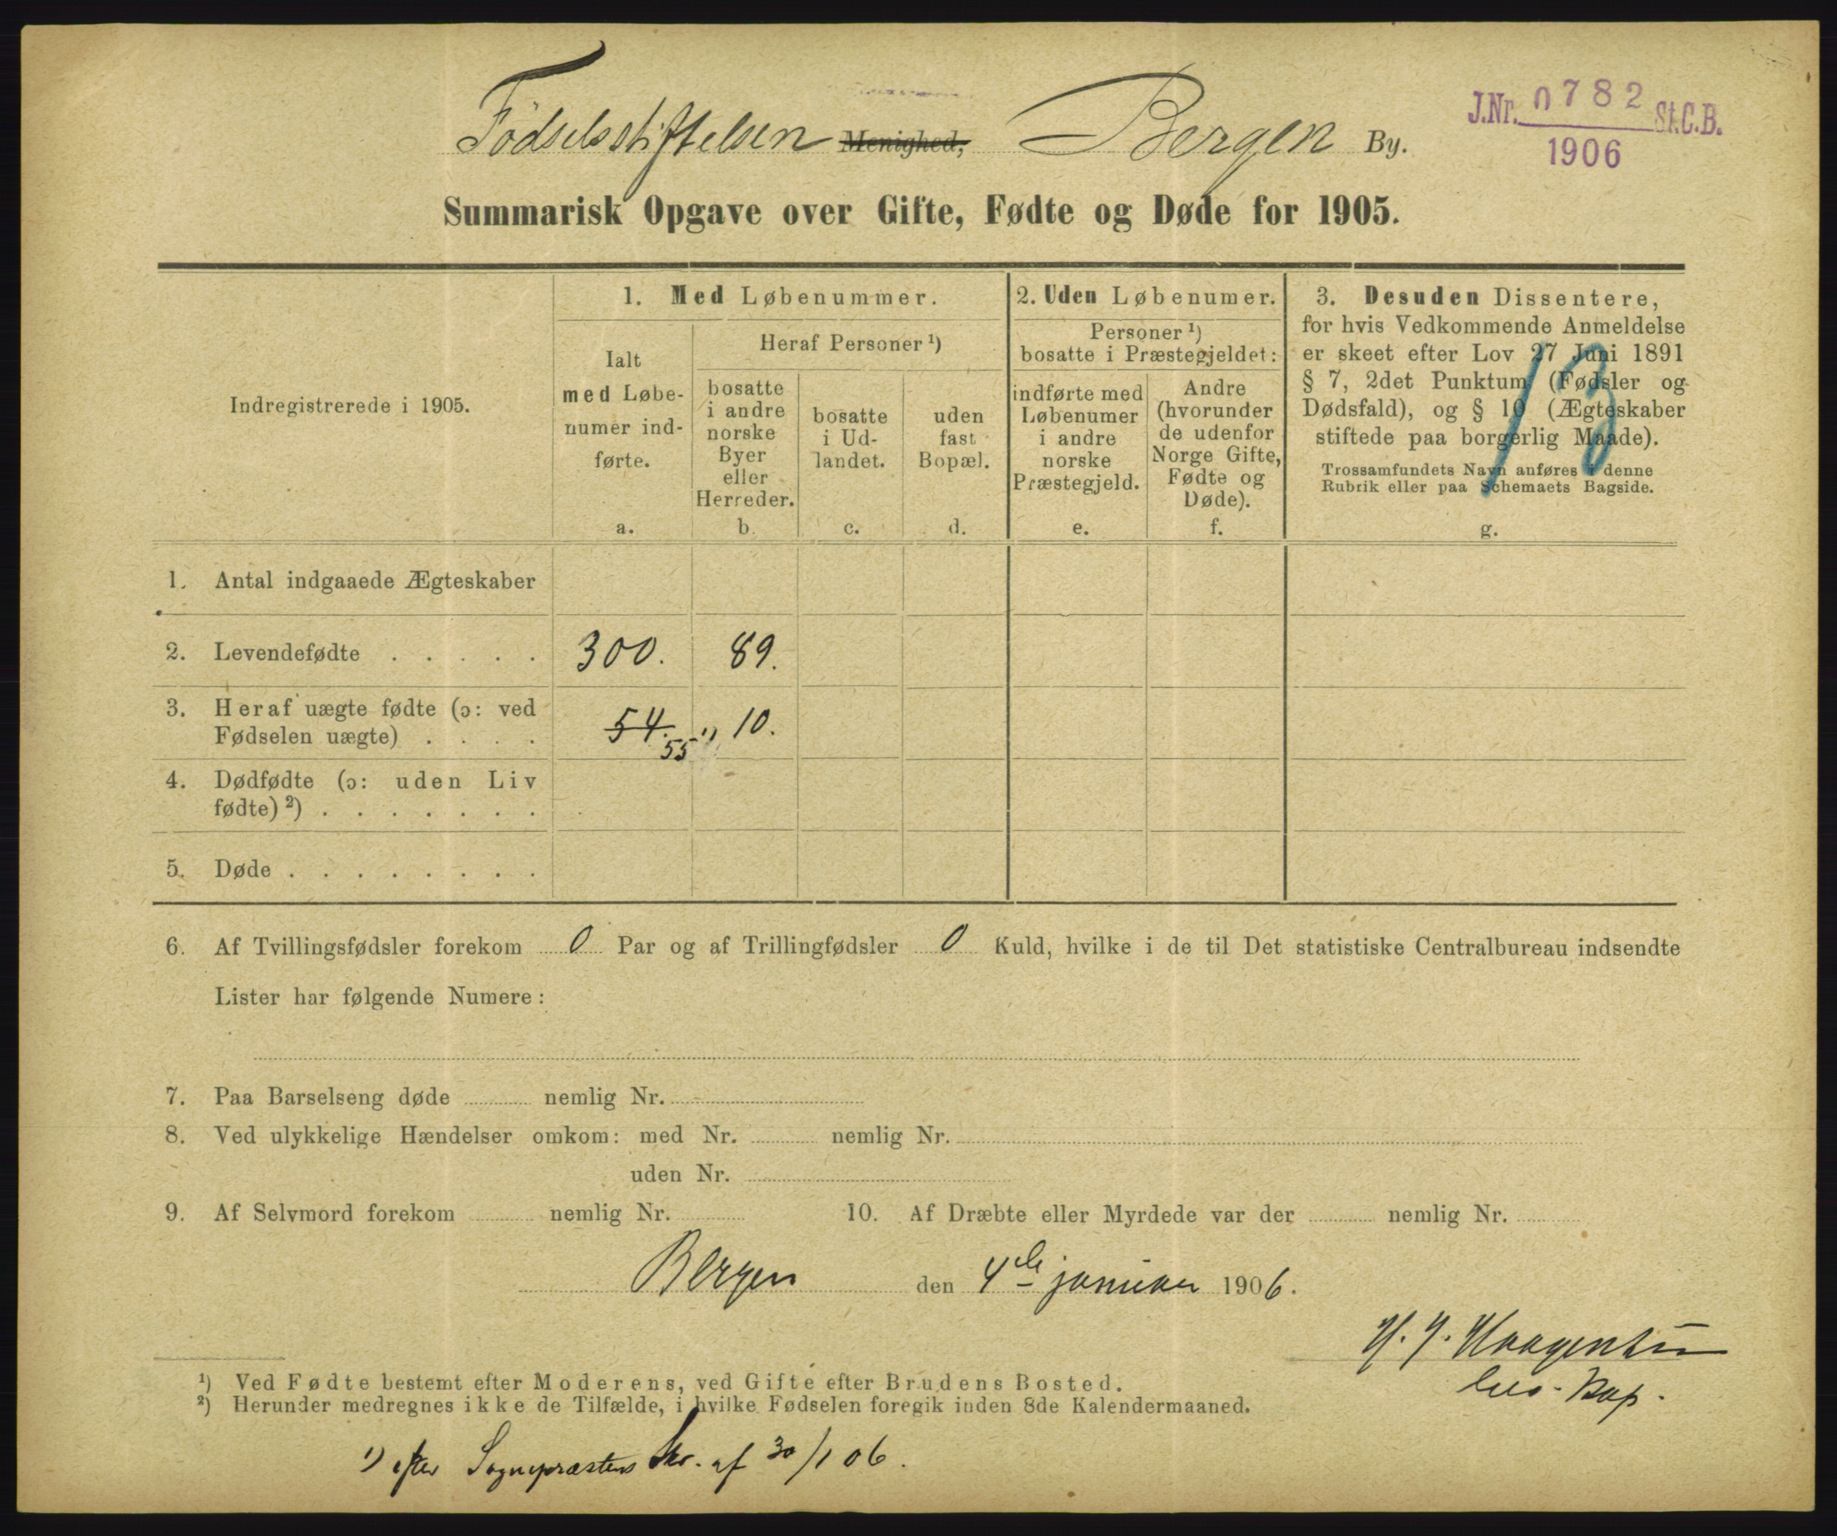 Fødselsstiftelsen Menighed, Bergen By.
J.Nr. 0782 St.C.B.
1906
Summarisk Opgave over Gifte, Fødte og Døde for 1905.
Indregistrerede i 1905.
1. Med Løbenummer.
Ialt
med Løbe-
numer ind-
førte.
a.
Heraf Personer ¹)
bosatte
i andre
norske
Byer
eller
Herreder.
b.
bosatte
i Ud-
landet.
c.
uden
fast
Bopæl.
d.
2. Uden Løbenumer.
Personer ¹)
bosatte i Præstegjeldet:
indførte med
Løbenumer
i andre
norske
Præstegjeld.
e.
Andre
(hvorunder
de udenfor
Norge Gifte,
Fødte og
Døde).
f.
3. Desuden Dissentere,
for hvis Vedkommende Anmeldelse
er skeet efter Lov 27 Juni 1891
§ 7, 2det Punktum (Fødsler og
Dødsfald), og § 10 (Ægteskaber
stiftede paa borgerlig Maade).
Trossamfundets Navn anføres i denne
Rubrik eller paa Schemaets Bagside.
g.
13
1. Antal indgaaede Ægteskaber
2. Levendefødte . . . . . 300. 89.
3. Heraf uægte fødte (ɔ: ved
Fødselen uægte) . . . . 54. 55 ¹) 10.
4. Dødfødte (ɔ: uden Liv
fødte) ²) . . . . . . .
5. Døde . . . . . . . .
6. Af Tvillingsfødsler forekom 0 Par og af Trillingfødsler 0 Kuld, hvilke i de til Det statistiske Centralbureau indsendte
Lister har følgende Numere:
7. Paa Barselseng døde nemlig Nr.
8. Ved ulykkelige Hændelser omkom: med Nr. nemlig Nr.
uden Nr.
9. Af Selvmord forekom nemlig Nr. 10. Af Dræbte eller Myrdede var der nemlig Nr.
Bergen den 4de januar 1906.
¹) Ved Fødte bestemt efter Moderens, ved Gifte efter Brudens Bosted.
²) Herunder medregnes ikke de Tilfælde, i hvilke Fødselen foregik inden 8de Kalendermaaned.
¹) efter Sognepræstens Skr. af 30/1 06.